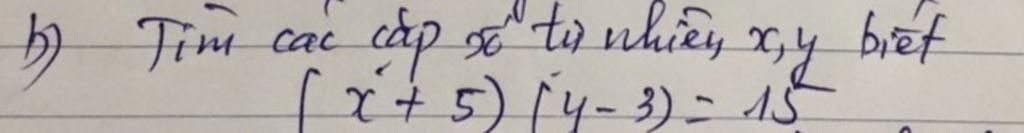 b) Tìm các cặp số tự nhiên x,y biết
(x + 5) (y - 3) = 15